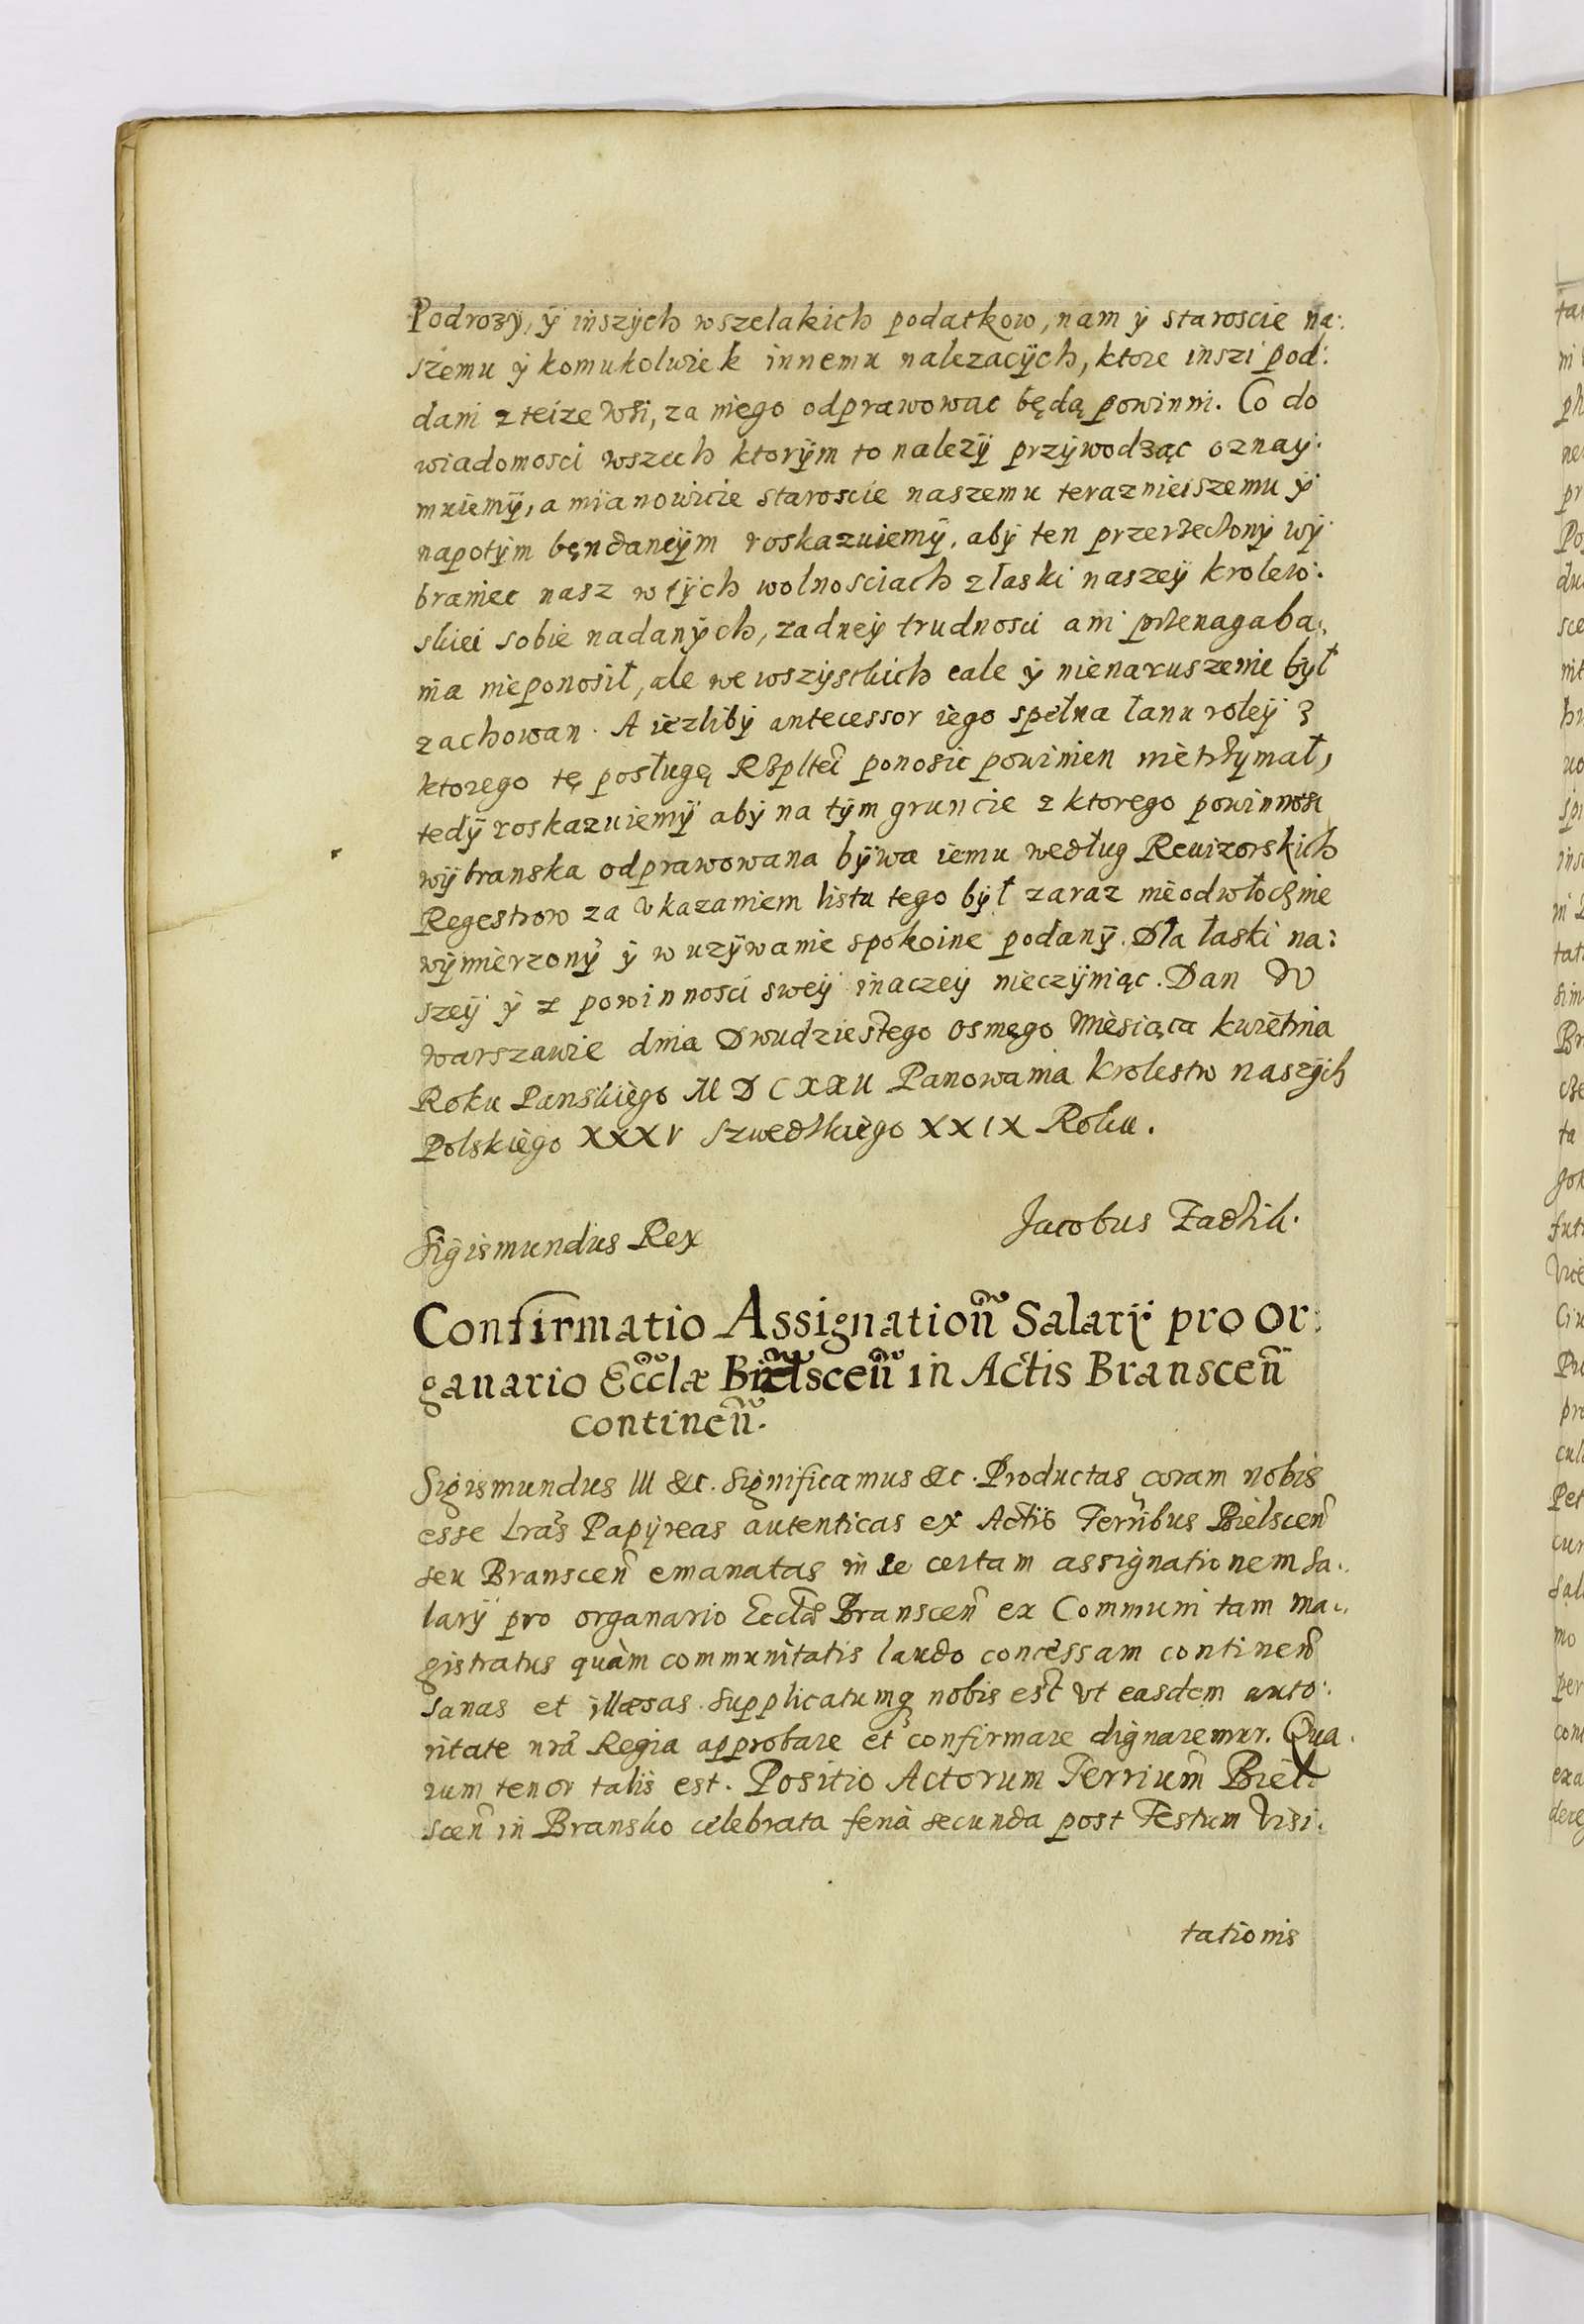 Podrozÿ, ÿ inszÿch wszelakich podatkow, nam ÿ staroscie na:
szemu ÿ komukolwiek innemu nalezacÿch, ktore inszi pod:
dani zteize wsi, za niego odprawowac będą powinni. Co do
wiadomosci wszech ktorÿm to nalezÿ przÿwodząc oznaÿ:
muiemÿ, a mianowicie staroscie naszemu terazniejszemu ÿ
napotÿm bęndancÿm roskazuiemÿ, abÿ ten przerzeczonÿ wÿ
braniec nasz w tÿch wolnosciach z łaski naszeÿ krolew:
skiei sobie nadanÿch, zadneÿ trudnosci ani przenagaba:
nia nieponosił, ale we wszÿstkich cale ÿ nienaruszenie bÿł
zachowan. A iezlibÿ antecessor iego spełna łanu roleÿ z
ktorego tę posługę Rzpltei ponosic powinien nietrzÿmał,
tedÿ roskazuiemÿ abÿ na tÿm gruncie z ktorego powinnosc
wÿbranska odprawowana bÿwa iemu według Reuizorskich
Regestrow za vkazaniem listu tego bÿł zaraz nieodwłocznie
wÿmierzonÿ ÿ w uzÿwanie spokoine podanÿ. Dla łaski na:
szeÿ ÿ z powinnosci sweÿ inaczeÿ nieczÿniąc. Dan W
Warszawie dnia Dwudziestego osmego Miesiąca kwietnia
Roku Panskiego MDCXXII Panowania krolestw naszÿch
Polskiego XXXV Szwedzkiego XXIX Roku.
Sigismundus Rex
Jacobus Zadzik.
Confirmatio Assignationn̄ Salarÿ pro Or:
ganario Eccl̄æ Bielscen̄ in Actis Branscen̄
continen̄.
Sigismundus III &c. Significamus &c. Productas coram nobis
esse Lrãs Papÿreas autenticas ex Actis Terribus Bielscen̄
seu Branscen̄ emanatas in se certam assignationem Sa:
larÿ pro organario Eccłæ Branscen̄ ex Communi tam ma:
gistratus quàm communitatis laudo concessam continen̄
sanas et illæsas. Supplicatumq nobis est vt easdem auto:
ritate nrã Regia approbare et confirmare dignaremur. Qua
rum tenor talis est. Positio Actorum Terrium̄ Biel:
scen̄ in Bransko celebrata feria secunda post Festum Visi:
tationis